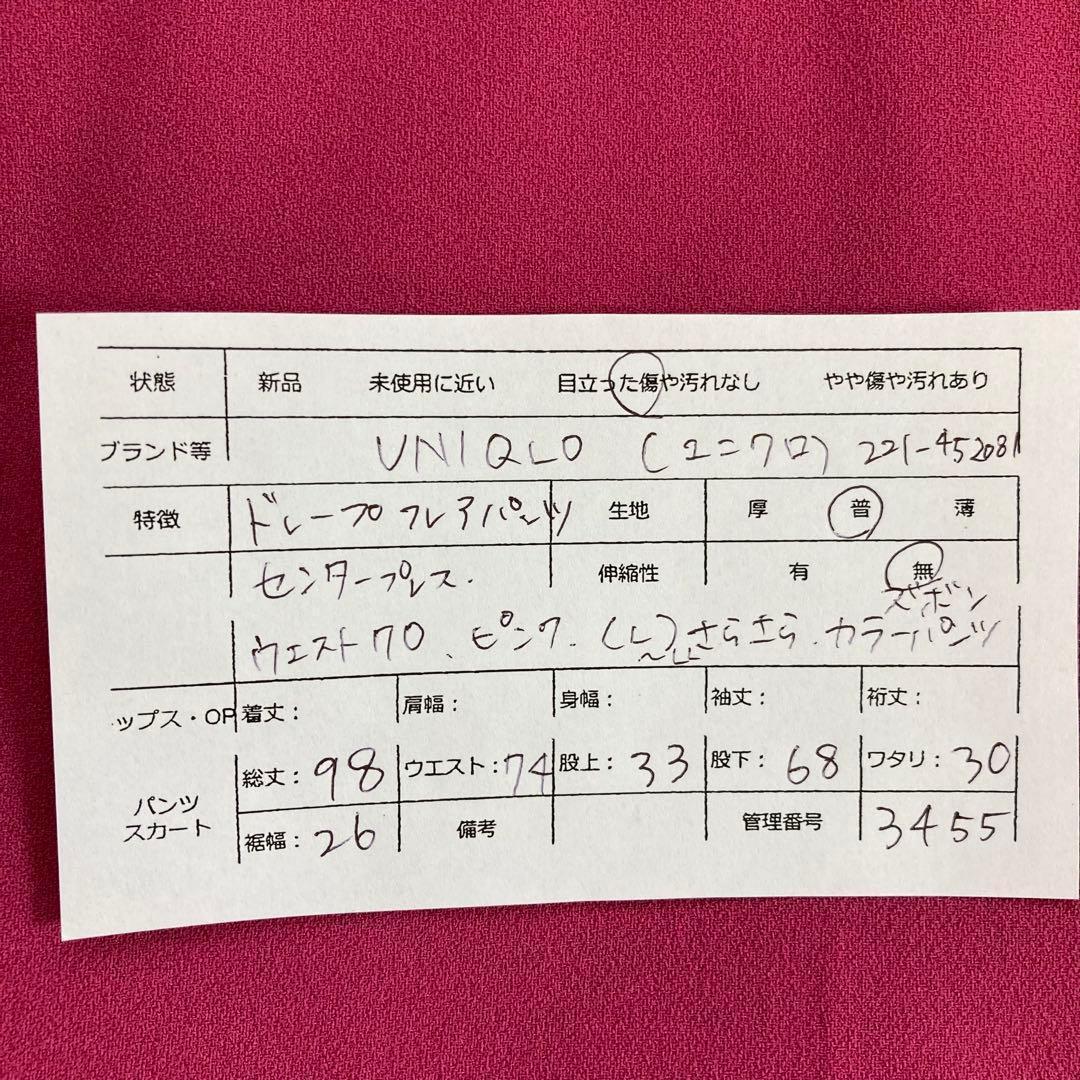 状態 新品 未使用に近い 目立った傷や汚れなし やや傷や汚れあり
ブランド等 UNIQLO (ユニクロ) 221-452081
特徴 ドレープフレアパンツ 生地 厚 普 薄
センタープレス. 伸縮性 有 無
ズボン
ウエスト70、ピンク、(L)さらさら、カラーパンツ
~LL
ップス・OP 着丈: 肩幅: 身幅: 袖丈: 裄丈:
パンツ スカート 総丈: 98 ウエスト: 74 股上: 33 股下: 68 ワタリ: 30
裾幅: 26 備考 管理番号 3455